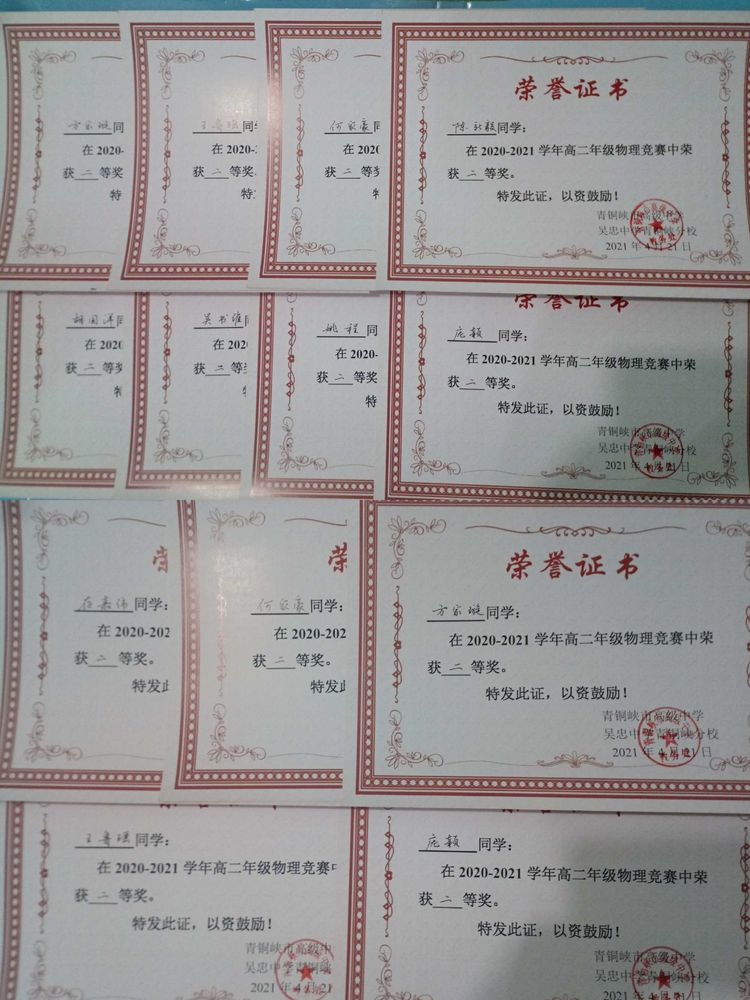 方家璇同
在 2020-
获 二 等奖
特
王鲁瑶同
在 2020-
获 二 等奖。
特
何家豪同
在 202
获 二 等奖
特
荣誉证书
同学：
在 2020-2021 学年高二年级物理竞赛中荣
获 二 等奖。
特发此证，以资鼓励！
青铜峡市高级中学
吴忠中学青铜峡分校
2021 年 4 月 21 日
胡国洋同
在 202
获 二 等奖
特
吴书淮同
在 202
获 二 等奖
特
姚程 同
在 2020-
获 二 等奖
特
荣誉证书
庞颖 同学：
在 2020-2021 学年高二年级物理竞赛中荣
获 二 等奖。
特发此证，以资鼓励！
青铜峡市高级中学
吴忠中学青铜峡分校
2021 年 4 月 21 日
荣
嘉伟同学：
在 2020-202
获 二 等奖。
特发此
荣
何家豪同学：
在 2020-202
获 二 等奖。
特发此
荣誉证书
方家璇同学：
在 2020-2021 学年高二年级物理竞赛中荣
获 二 等奖。
特发此证，以资鼓励！
青铜峡市高级中学
吴忠中学青铜峡分校
2021 年 4 月 21 日
王鲁瑶同学：
在 2020-2021 学年高二年级物理竞赛中
获 二 等奖。
特发此证，以资鼓励！
青铜峡市高级中
吴忠中学青铜峡
2021 年 4 月 21
庞颖 同学：
在 2020-2021 学年高二年级物理竞赛中荣
获 二 等奖。
特发此证，以资鼓励！
青铜峡市高级中学
吴忠中学青铜峡分校
2021 年 4 月 21 日